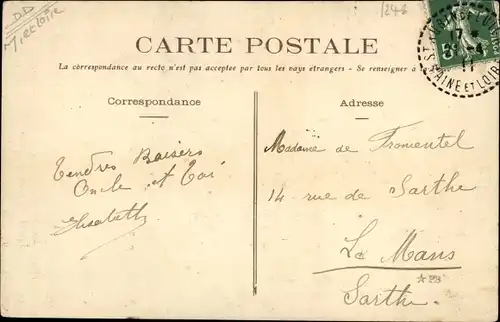 DD
M et Loire
1246
CARTE POSTALE
La correspondance au recto n'est pas acceptée par tous les pays étrangers - Se renseigner à
5
17
11
MAINE ET LOIRE
Correspondance
Adresse
Tendres Baisers
Oncle et
Elisabeth
Madame de Fromentel
14 rue de Sarthe
Le Mans
*23
Sarthe